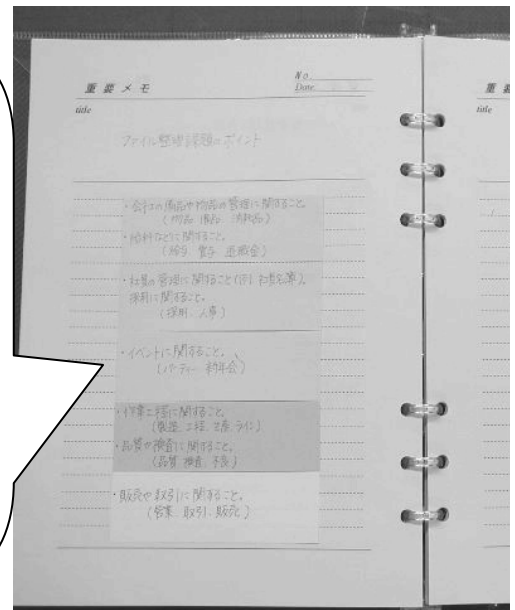 重要メモ
No.
Date
title
ファイル整理課題のポイント
・会社の備品や物品の管理に関すること。
(物品 備品 消耗品)
・給料などに関すること。
(給与 賞与 退職金)
・社員の管理に関すること(例 社員名簿)、
採用に関すること。
(採用、人事)
・イベントに関すること、
(パーティー 忘年会)
・作業工程に関すること。
(製造 工程 生産 ライン)
・品質や検査に関すること。
(品質 検査 不良)
・販売や取引に関すること。
(営業、取引、販売)
重要
title